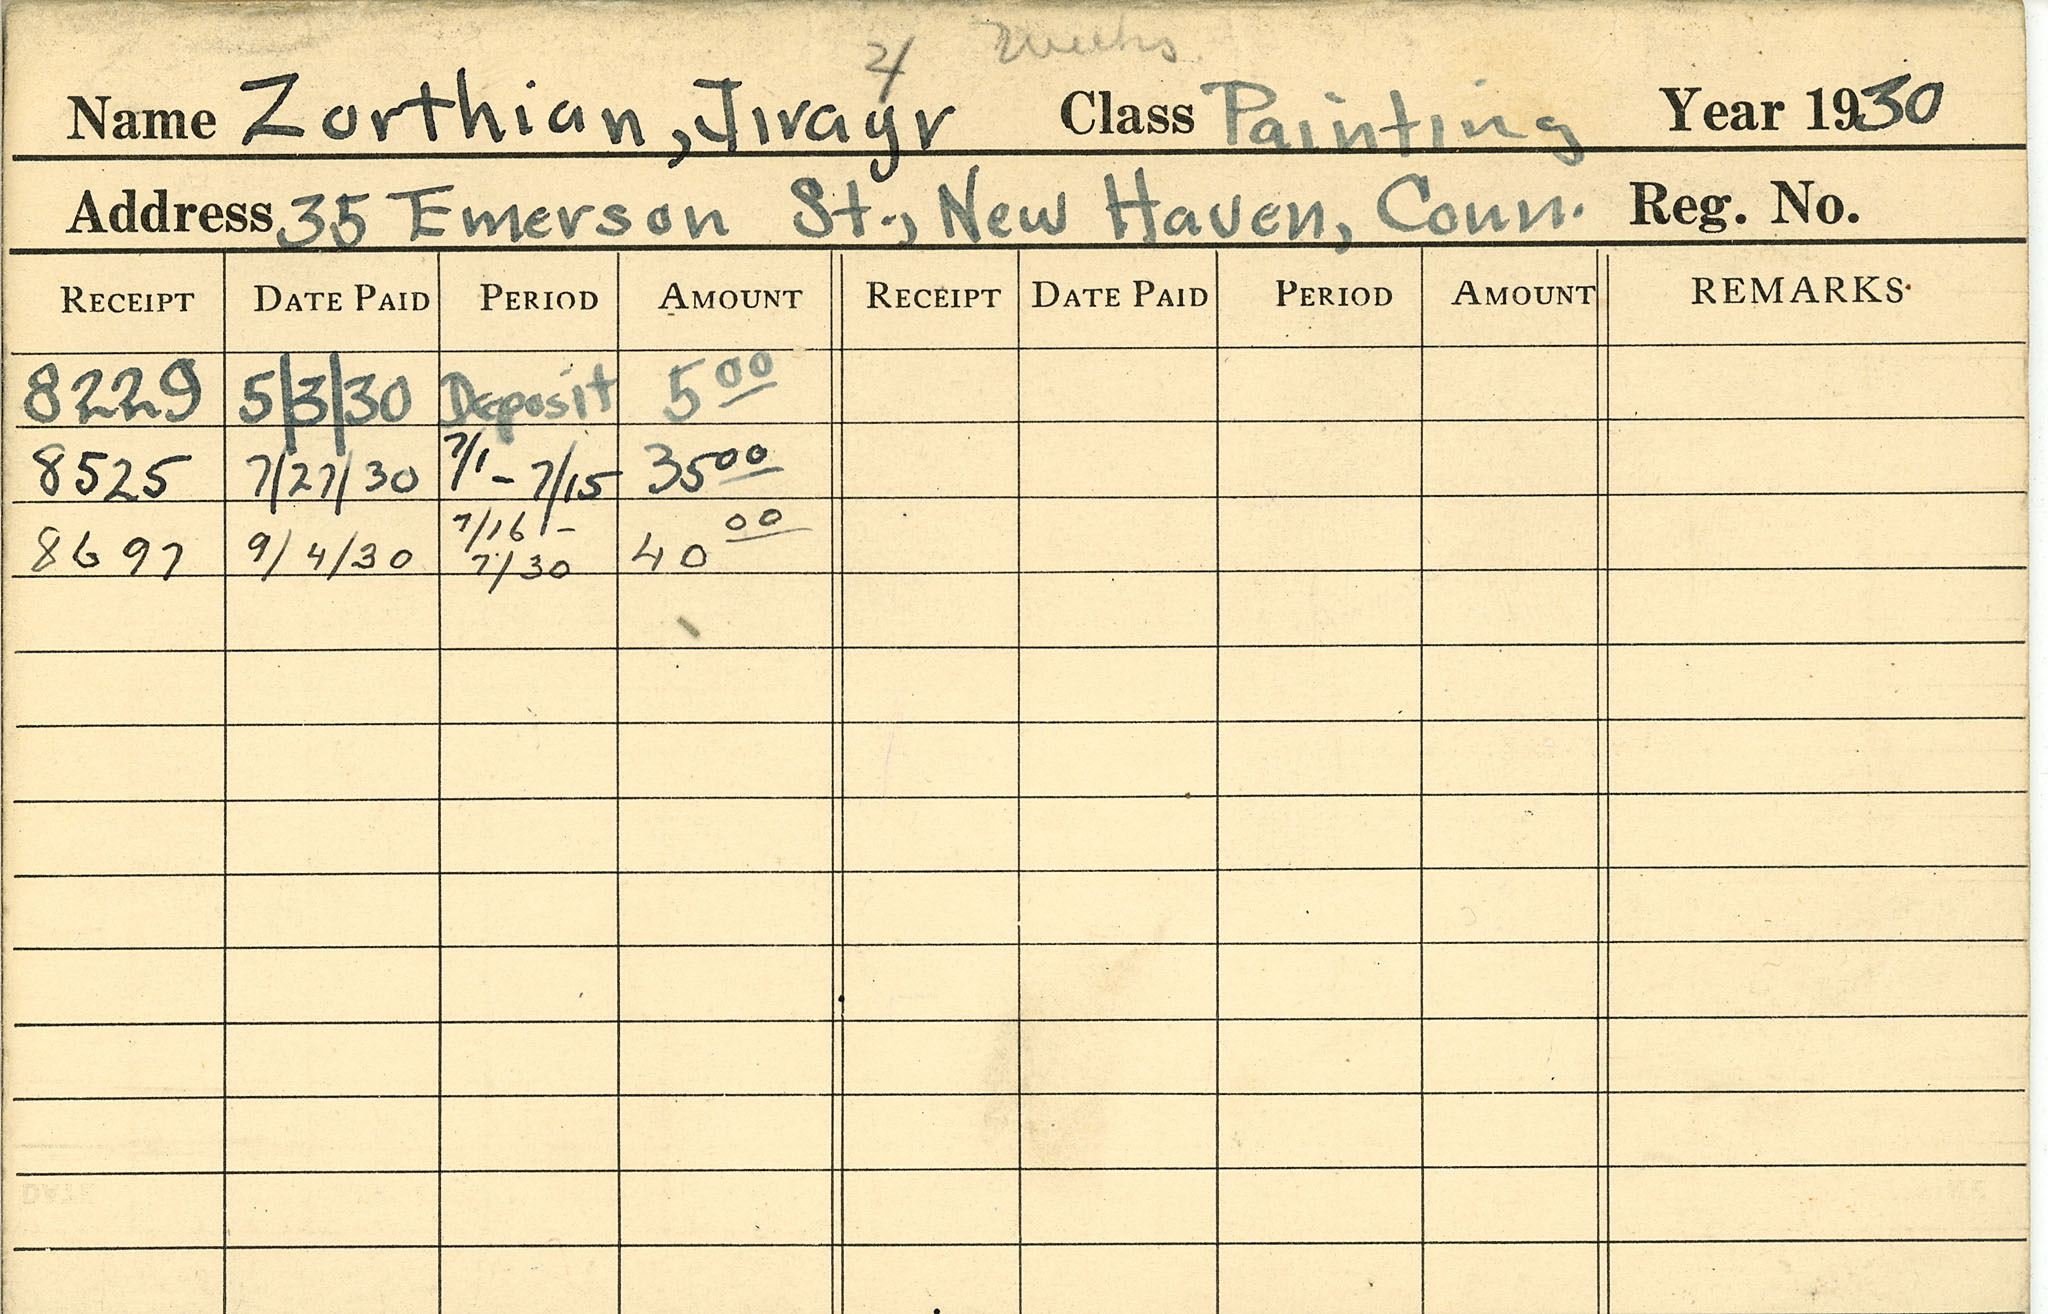 4 Weeks
Name Zorthian, Jirayr Class Painting Year 1930
Address 35 Emerson St., New Haven, Conn. Reg. No.
RECEIPT DATE PAID PERIOD AMOUNT RECEIPT DATE PAID PERIOD AMOUNT REMARKS
8229 5/3/30 Deposit 5 00
8525 7/27/30 7/1 - 7/15 35 00
8697 9/4/30 7/16 - 7/30 40 00
DATE